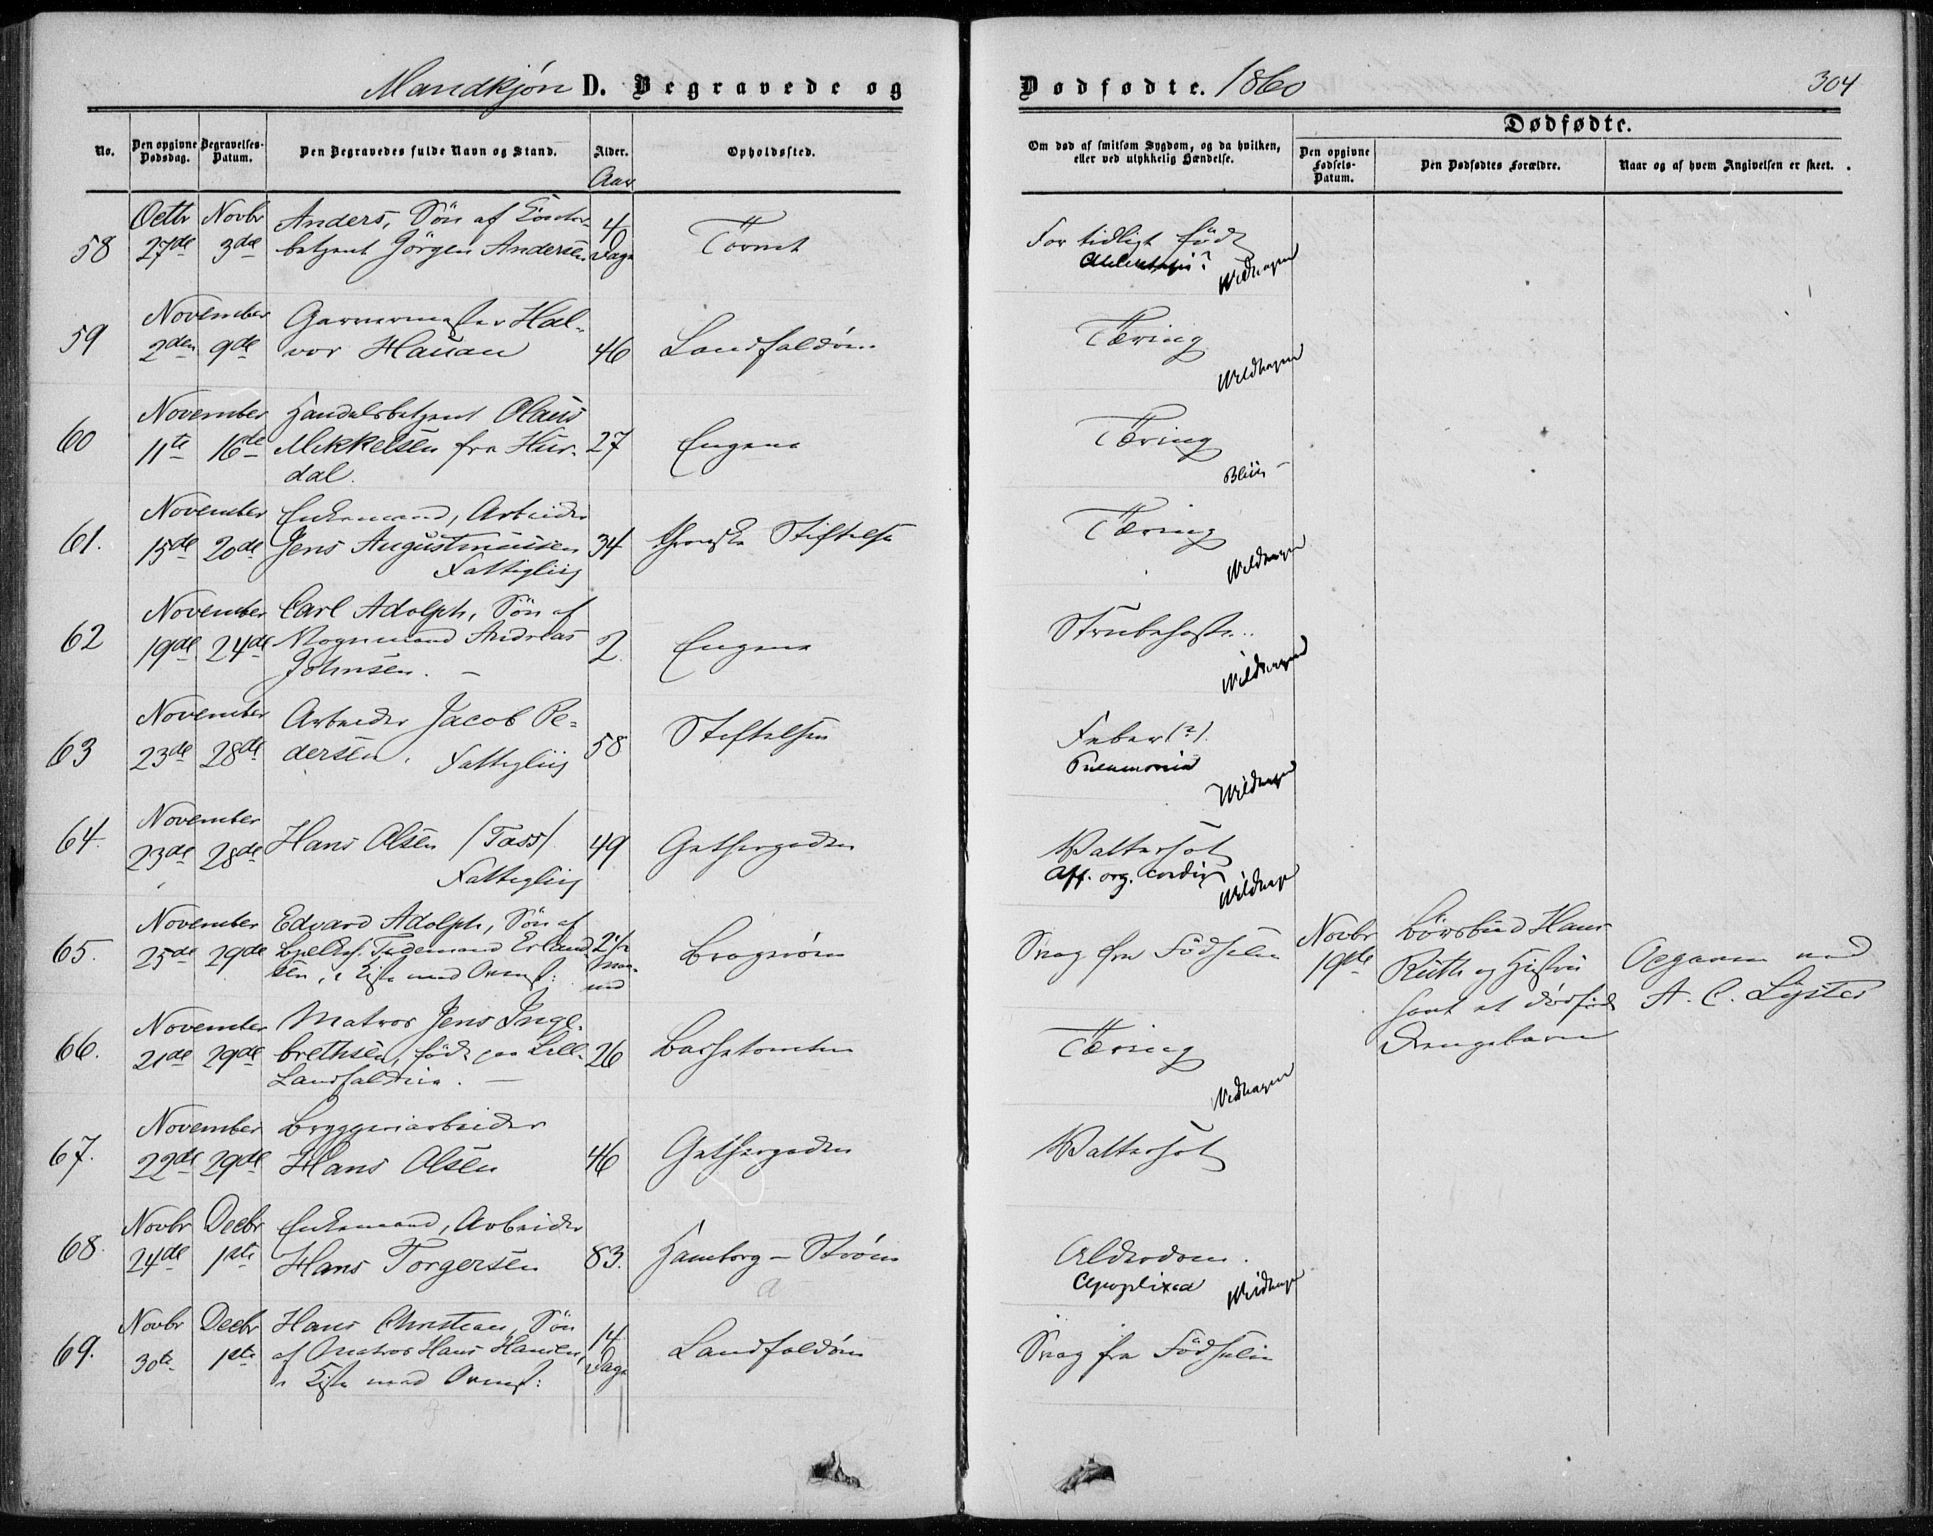 Mandkjøn D. Begravede og Dødfødte. 1860 304
No. Den opgivne Dødsdag. Begravelses-Datum. Den Begravedes fulde Navn og Stand. Alder. Opholdssted. Om død af smitsom Sygdom, og da hvilken, eller ved ulykkelig Hændelse. Dødfødte.
Den opgivne Fødsels-Datum. Den Dødfødtes Forældre. Naar og af hvem Angivelsen er skeet.
Aar
Octbr Novbr Anders, Søn af
58 27de 3die betjent Jörgen Andersen 4 Dage Tornet For tidligt født
Wildhagen
November Garvermester Hal-
59 2den 9de vor Hauan 46 Landfaldøen Tæring
Wildhagen
November Handelsbetjent Olaus
60 11te 16de Mikkelsen fra Hur- 27 Engene Tæring
dal.
November Enkemand, Arbeider
61. 15de 20de Jens Augustinussen 34 Stiftelse Tæring
Fattiglig Wildhagen
November Carl Adolph, Søn af
62 19de 24de Vognmand Andreas 2. Engene Strubehoste
Johnsen. Wildhagen
November Arbeider Jacob Pe-
63 23de 28de dersen. Fattiglig 58 Stiftelsen Feber (?).
Pneumonia
Wildhagen
November
64. 23de 28de Hans Olsen /Tass/ 49 Gethergaden Vattersot
Fattiglig Aff. org. cordis Wildhagen
November Edvard Adolph, Søn af
65. 25de 29de Tidemand Erland- 2½ Maaned Bragnøen Svag fra Fødselen
sen, i Kiste med Ovenst:
Novbr 19de Børsbud Hans Ruth og Hustru havt et dødfødt Drengebarn
Opgaven ved A. C. Lyster
November Matros Jens Inge-
66. 21de 29de brethsen, født paa Lille 26 Bassetomten Tæring
Landfaldøen. Wildhagen
November Bryggeriarbeider
67. 22de 29de Hans Olsen 46 Gethergaden Vattersot
Novbr Decbr Enkemand, Arbeider
68. 24de 1ste Hans Torgersen 83. Hamborg-Strøm Alderdom.
Apoplixea Wildhagen
Novbr Decbr Hans Christian, Søn
69. 30te 1ste af Matros Hans Hansen, 14 Dage Landfaldøen Svag fra Fødselen
i Kiste med Ovenst: